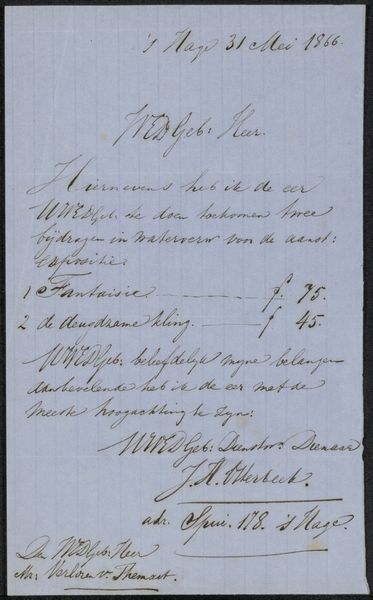 's Hage 31 Mei 1866.
WEDGeb: Heer.
Hiernevens heb ik de eer
UWEDGeb. te doen toekomen twee
bijdragen in waterverw voor de aanst:
expositie:
1 Fantaisie. f 75.
2 de deudzame kling. f 45.
UWEDGeb: beleefdelijk myne belangen
aanbevelende heb ik de eer met de
meeste hoogachting te zyn:
UWEDGeb: Dienstw. Dienaar
J. A. Otterbeek.
adr. Spui. 178. 's Hage.
Den WEDGeb: Heer
Mr: Verloren v. Themaat.